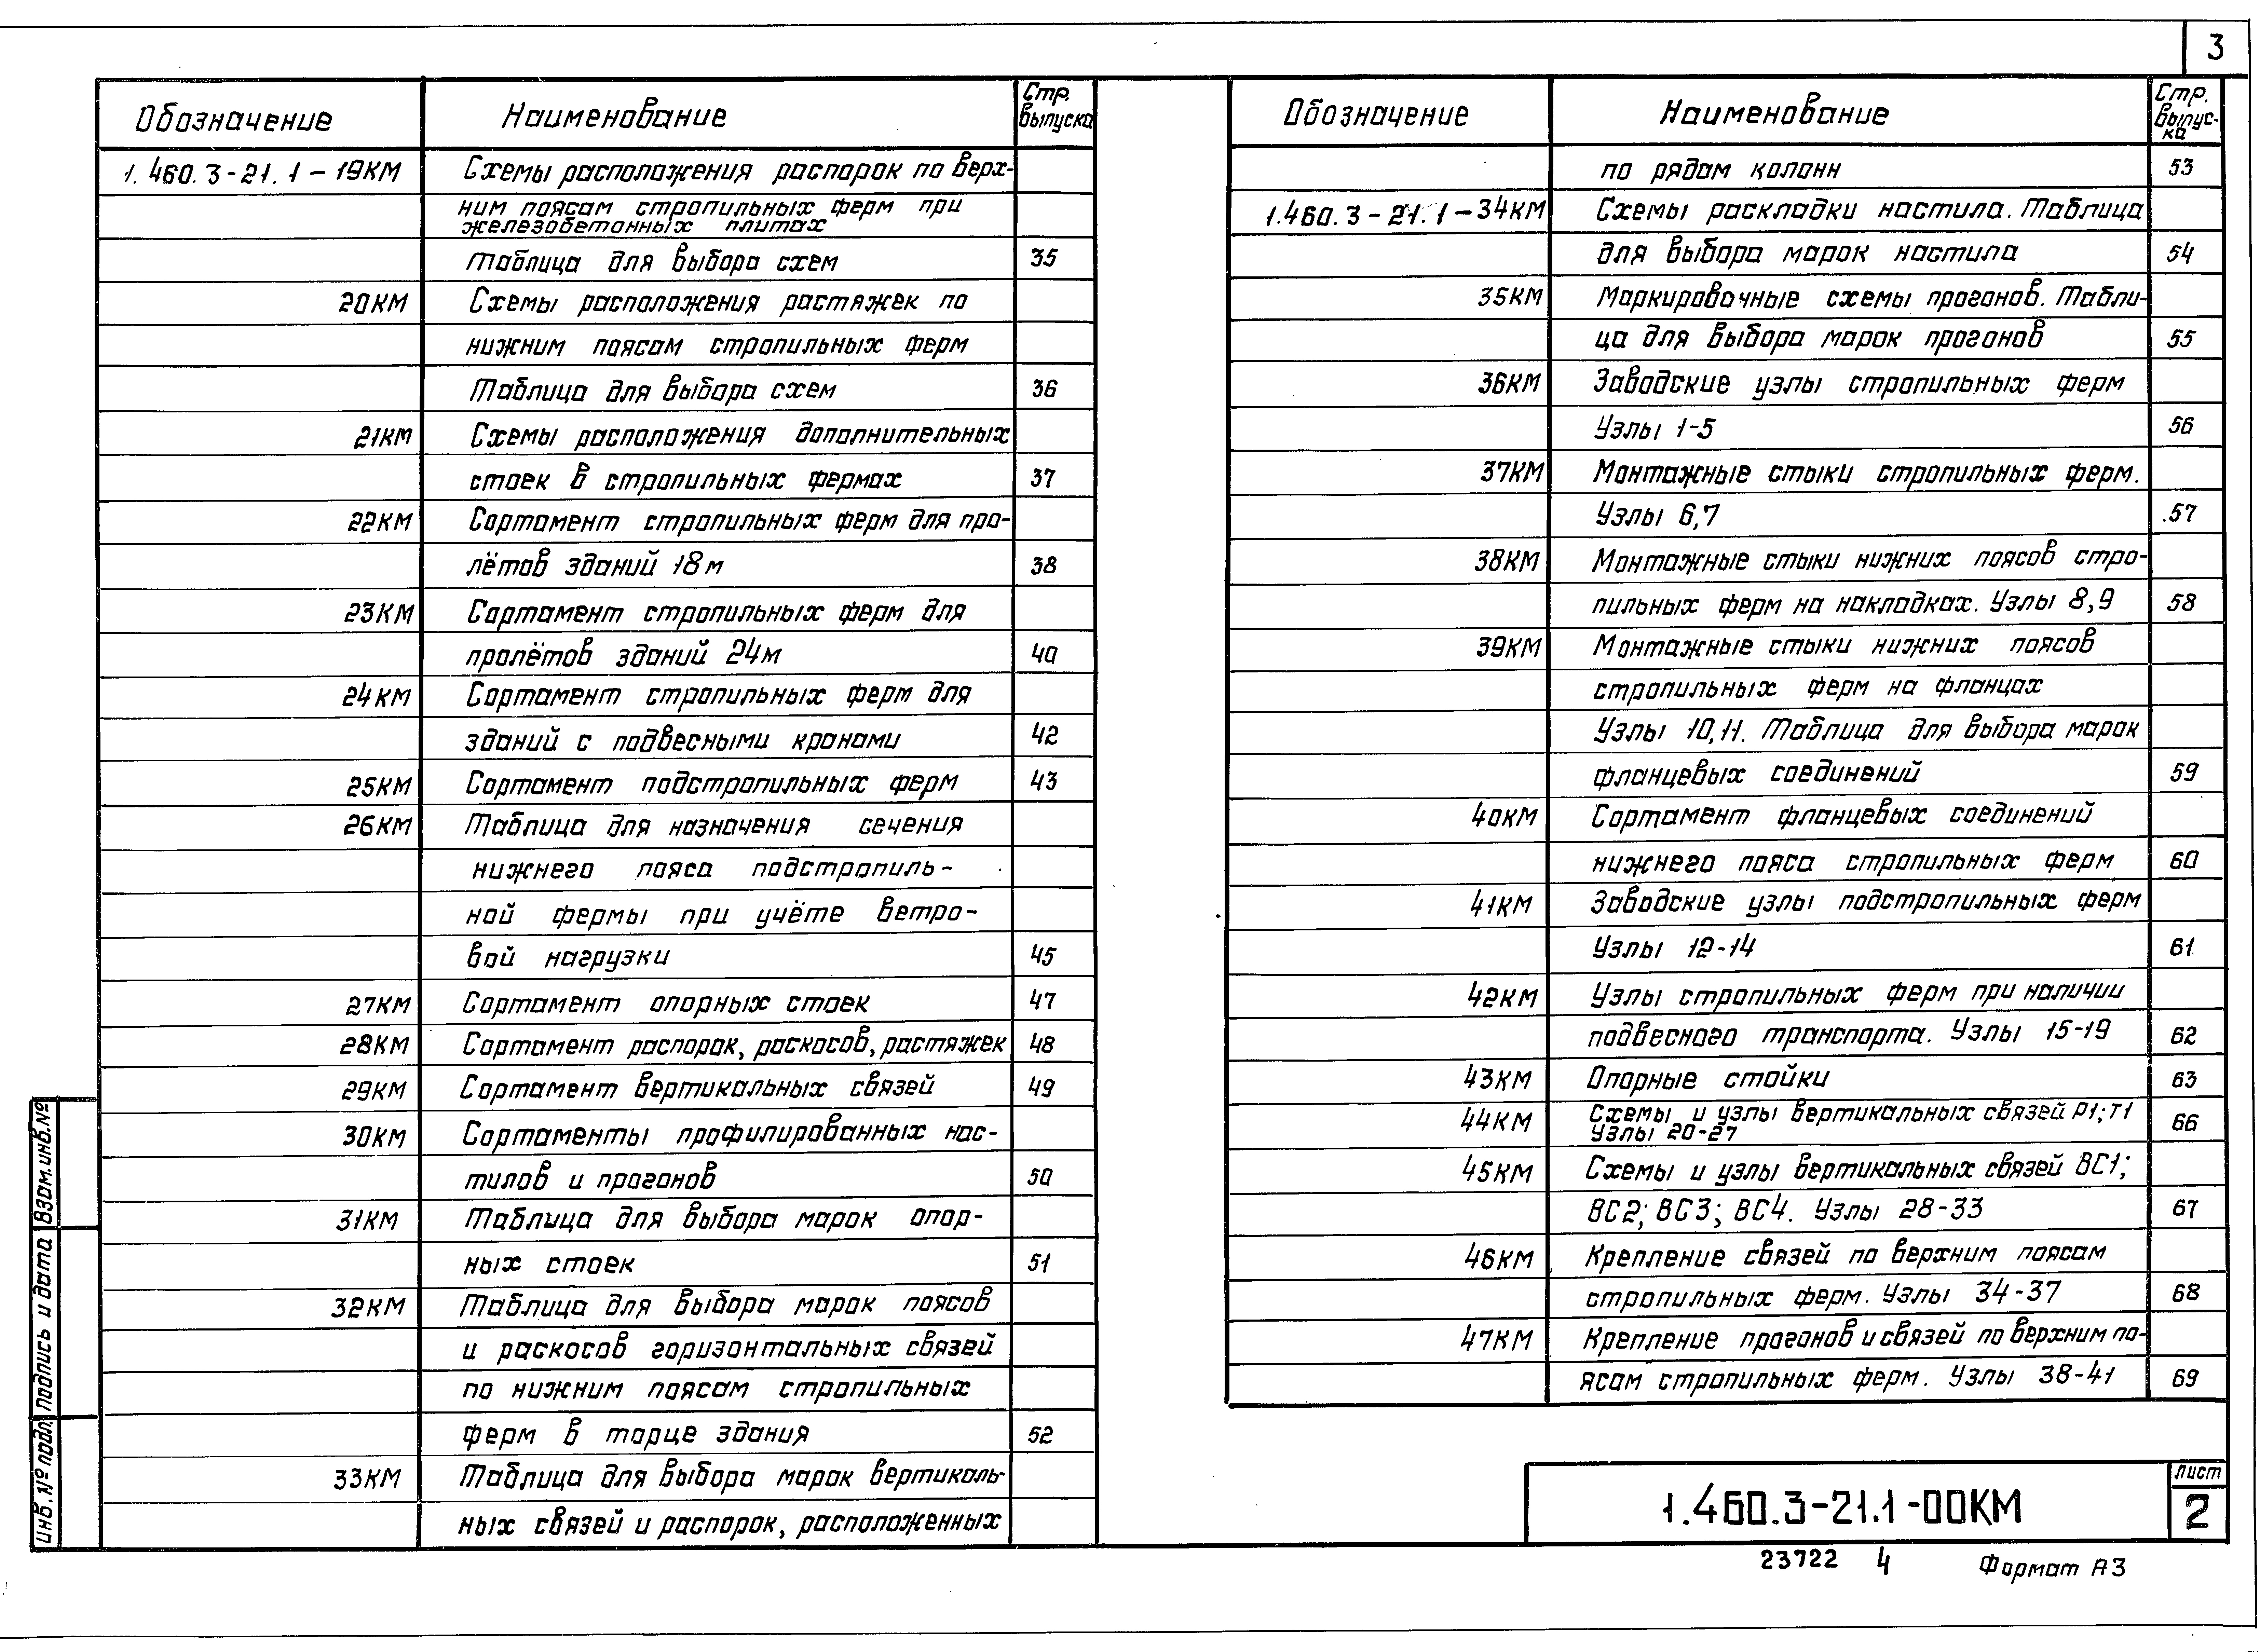 3
Обозначение Наименование Стр. выпуска
1.460.3-21.1-19КМ Схемы расположения распорок по верх-
ним поясам стропильных ферм при
железобетонных плитах
таблица для выбора схем 35
20КМ Схемы расположения растяжек по
нижним поясам стропильных ферм
Таблица для выбора схем 36
21КМ Схемы расположения дополнительных
стоек в стропильных фермах 37
22КМ Сортамент стропильных ферм для про-
лётов зданий 18м 38
23КМ Сортамент стропильных ферм для
пролётов зданий 24м 40
24КМ Сортамент стропильных ферм для
зданий с подвесными кранами 42
25КМ Сортамент подстропильных ферм 43
26КМ Таблица для назначения сечения
нижнего пояса подстропиль-
ной фермы при учёте ветро-
вой нагрузки 45
27КМ Сортамент опорных стоек 47
28КМ Сортамент распорок, раскосов, растяжек 48
29КМ Сортамент вертикальных связей 49
30КМ Сортаменты профилированных нас-
тилов и прогонов 50
31КМ Таблица для выбора марок опор-
ных стоек 51
32КМ Таблица для выбора марок поясов
и раскосов горизонтальных связей
по нижним поясам стропильных
ферм в торце здания 52
33КМ Таблица для выбора марок вертикаль-
ных связей и распорок, расположенных
Обозначение Наименование Стр. выпус-ка
по рядам колонн 53
1.460.3-21.1-34КМ Схемы раскладки настила. Таблица
для выбора марок настила 54
35КМ Маркировочные схемы прогонов. Табли-
ца для выбора марок прогонов 55
36КМ Заводские узлы стропильных ферм
Узлы 1-5 56
37КМ Монтажные стыки стропильных ферм.
Узлы 6,7 57
38КМ Монтажные стыки нижних поясов стро-
пильных ферм на накладках. Узлы 8,9 58
39КМ Монтажные стыки нижних поясов
стропильных ферм на фланцах
Узлы 10,11. Таблица для выбора марок
фланцевых соединений 59
40КМ Сортамент фланцевых соединений
нижнего пояса стропильных ферм 60
41КМ Заводские узлы подстропильных ферм
Узлы 12-14 61
42КМ Узлы стропильных ферм при наличии
подвесного транспорта. Узлы 15-19 62
43КМ Опорные стойки 63
44КМ Схемы и узлы вертикальных связей Р1; Т1
Узлы 20-27 66
45КМ Схемы и узлы вертикальных связей ВС1;
ВС2; ВС3; ВС4. Узлы 28-33 67
46КМ Крепление связей по верхним поясам
стропильных ферм. Узлы 34-37 68
47КМ Крепление прогонов и связей по верхним по-
ясам стропильных ферм. Узлы 38-41 69
Инв. № подл. Подпись и дата Взам.инв.№
1.460.3-21.1-00КМ
Лист
2
23722 4 Формат А3